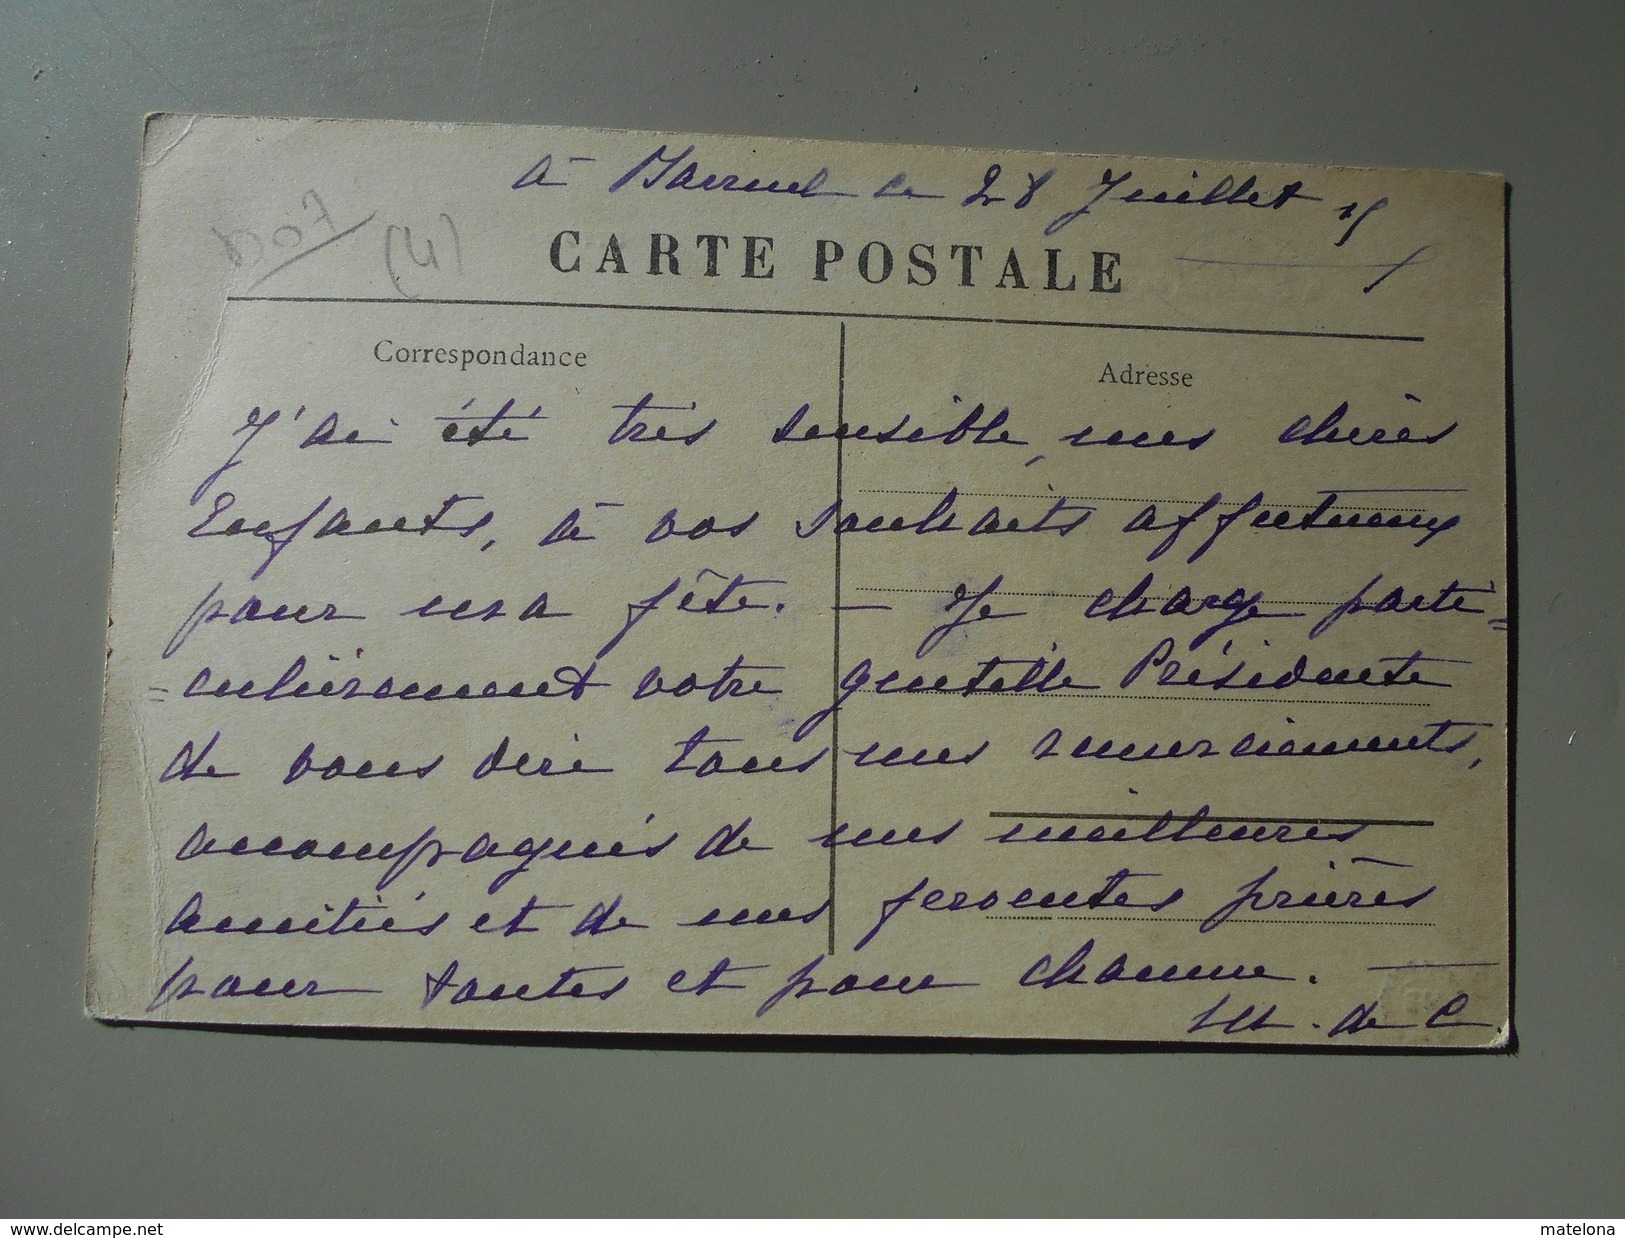 à ce 28 Juillet 15
(4)
CARTE POSTALE
Correspondance
Adresse
J'ai été très sensible, mes chères
Enfants, à vos souhaits affectueux
pour ma fête. — Je charge parti=
=culièrement votre gentille Présidente
de vous dire tous mes remerciements,
accompagnés de mes meilleures
amitiés et de mes ferventes prières
pour toutes et pour chacune. —
M. de C.
www.delcampe.net
matelona